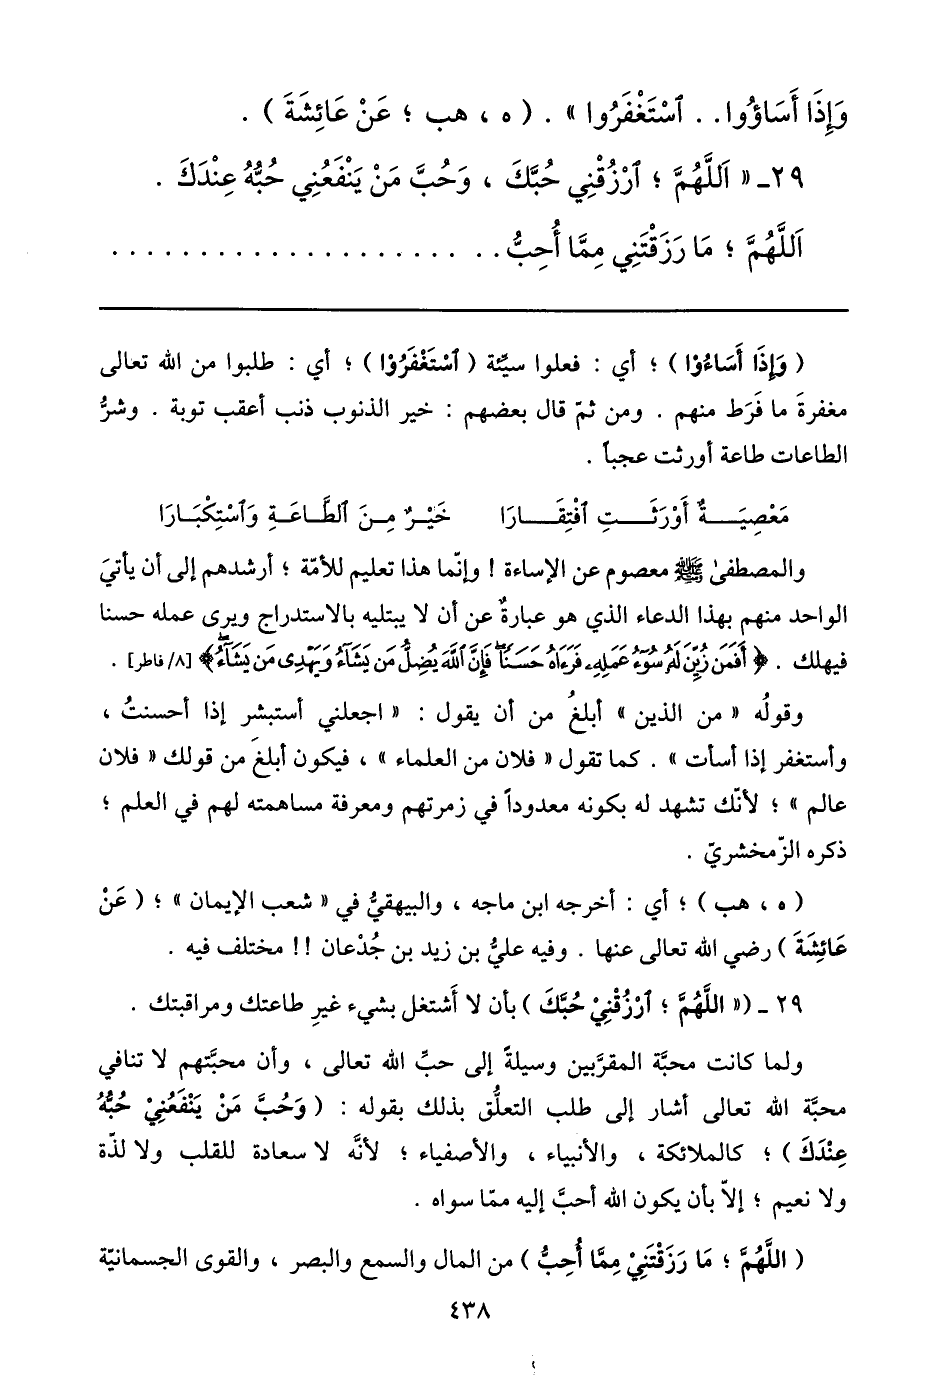 وَإِذَا أَسَاؤُوا . . ٱسْتَغْفَرُوا » . ( ه ، هب ؛ عَنْ عَائِشَةَ ) .
٢٩ـ « اَللَّهُمَّ ؛ ٱرْزُقْنِي حُبَّكَ ، وَحُبَّ مَنْ يَنْفَعُنِي حُبُّهُ عِنْدَكَ .
اَللَّهُمَّ ؛ مَا رَزَقْتَنِي مِمَّا أُحِبُّ . . . . . . . . . . . . . . . . . . . . . .
( وَإِذَا أَسَاءُوْا ) ؛ أي : فعلوا سيِّئة ( ٱسْتَغْفَرُوْا ) ؛ أي : طلبوا من الله تعالى
مغفرةَ ما فَرَط منهم . ومن ثمّ قال بعضهم : خير الذنوب ذنب أعقب توبة . وشرُّ
الطاعات طاعة أورثت عجباً .
مَعْصِيَـةٌ أَوْرَثَـتِ ٱفْتِقَـارَا خَيْـرٌ مِـنَ ٱلطَّـاعَـةِ وَٱسْتِكْبَـارَا
والمصطفىٰ ﷺ معصوم عن الإساءة ! وإنّما هذا تعليم للأمّة ؛ أرشدهم إلى أن يأتيَ
الواحد منهم بهذا الدعاء الذي هو عبارةٌ عن أن لا يبتليه بالاستدراج ويرى عمله حسنا
فيهلك . ﴿ أَفَمَن زُيِّنَ لَهُۥ سُوٓءُ عَمَلِهِۦ فَرَءَاهُ حَسَنًاۖ فَإِنَّ ٱللَّهَ يُضِلُّ مَن يَشَآءُ وَيَهْدِى مَن يَشَآءُۖ ﴾ [٨/ فاطر] .
وقولُه « من الذين » أبلغُ من أن يقول : « اجعلني أستبشر إذا أحسنتُ ،
وأستغفر إذا أسأت » . كما تقول « فلان من العلماء » ، فيكون أبلغَ من قولك « فلان
عالم » ؛ لأنّك تشهد له بكونه معدوداً في زمرتهم ومعرفة مساهمته لهم في العلم ؛
ذكره الزّمخشريّ .
( ه ، هب ) ؛ أي : أخرجه ابن ماجه ، والبيهقيُّ في « شعب الإيمان » ؛ ( عَنْ
عَائِشَةَ ) رضي الله تعالى عنها . وفيه عليُّ بن زيد بن جُدْعان !! مختلف فيه .
٢٩ـ (« اللَّهُمَّ ؛ ٱرْزُقْنِيْ حُبَّكَ ) بأن لا أَشتغل بشيء غيرِ طاعتك ومراقبتك .
ولما كانت محبَّة المقرَّبين وسيلةً إلى حبِّ الله تعالى ، وأن محبَّتهم لا تنافي
محبَّة الله تعالى أشار إلى طلب التعلُّق بذلك بقوله : ( وَحُبَّ مَنْ يَنْفَعُنِيْ حُبُّهُ
عِنْدَكَ ) ؛ كالملائكة ، والأنبياء ، والأصفياء ؛ لأنَّه لا سعادة للقلب ولا لذّة
ولا نعيم ؛ إلاّ بأن يكون الله أحبَّ إليه ممّا سواه .
( اللَّهُمَّ ؛ مَا رَزَقْتَنِيْ مِمَّا أُحِبُّ ) من المال والسمع والبصر ، والقوى الجسمانيّة
٤٣٨